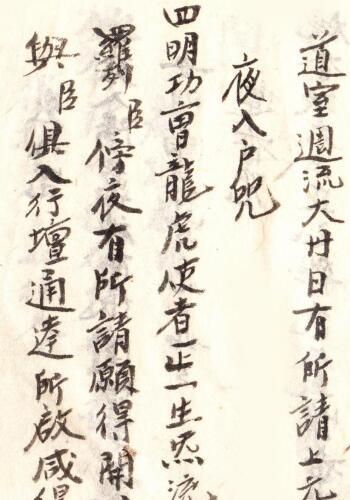 道室週流大廿日有所請上元
夜入户咒
四明功曹龍虎使者正一生炁流
羅列臣傍夜有所請願得開
與臣俱入行壇通達所啟咸得